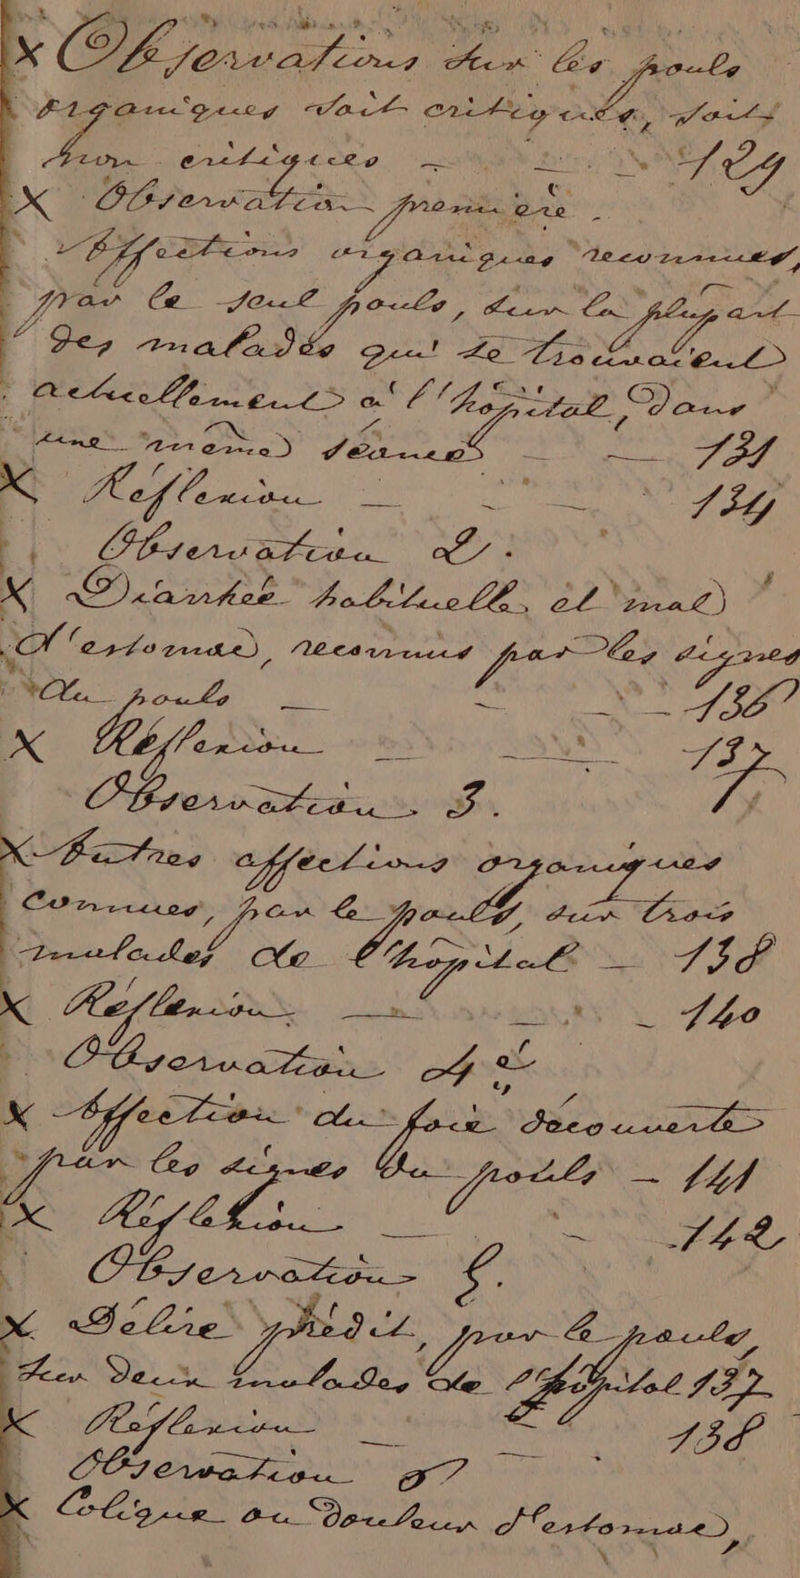 x Observations sur les pouls
organiques soit critiques, soit
non critiques — — — 129
x Observation première.
Affections organiques reconnues,
par le seul pouls, sur la plupart
des malades qui se trouvaient
actuellement à l'hôpital, dans
une même séance — — 131
x Réflexion — — — 134
Observation 2.
x Diarrhée habituelle et mal
d'estomac, reconnus par les signes
du pouls — — — 136
x Réflexion — — 137
Observation 3.
x Autres affections organiques
connues, par le pouls, sur trois
malades de l'hôpital — 138
x Réflexion — — — 140
Observation 4é
x Affection du foie découverte
par les signes du pouls — 141
x Réflexion — — 142
Observation 5.
x Délire prédit, par le pouls,
sur deux malades de l'hôpital 137
x Réflexion — — 138
Observation 6
x Colique ou douleur d'estomac,